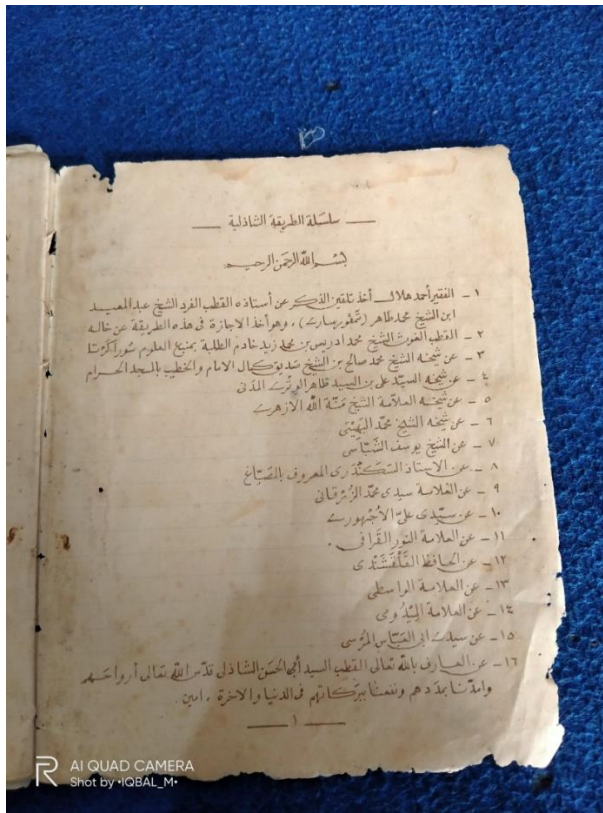 سلسلة الطريقة الشاذلية
بسم الله الرحمن الرحيم
١ - الفقير أحمد هلال أخذ تلقين الذكر عن أستاذه القطب الفرد الشيخ عبد المعيد
ابن الشيخ محمد طاهر ، وهو أخذ الاجازة في هذه الطريقة عن خاله
٢ - القطب الغوث الشيخ محمد ادريس بن محمد زيد خادم الطلبة بمنبع العلوم سُوراكَرْتا
٣ - عن شيخه الشيخ محمد صالح بن الشيخ صديق كمال الامام والخطيب بالمسجد الحرام
٤ - عن شيخه السيّد علي بن السيد ظاهر الوِتْرى المدنى
٥ - عن شيخه العلامة الشيخ مَنّة الله الازهرى
٦ - عن شيخه الشيخ محمّد البَهِيّتى
٧ - عن الشيخ يوسف الشَّبَّاسى
٨ - عن الاستاذ السَكَنْدَرى المعروف بالصَّبّاغ
٩ - عن العلامة سيدى محمّد الزُرْقانى
١٠ - عن سيّدى علىّ الأُجْهورى
١١ - عن العلامة النور القَرافى .
١٢ - عن الحافظ القَلْقَشَنْدى
١٣ - عن العلامة الواسطى
١٤ - عن العلامة المَيْدُومى
١٥ - عن سيدى ابى العَبّاس المُرْسى
١٦ - عن العارف بالله تعالى القطب السيد أبى الحَسَن الشاذلى قدّس الله تعالى أرواحَهم
وامدّنا بمَدَدهم ونفعنا ببَرَكاتهم فى الدنيا والاخرة ، امين.
١
AI QUAD CAMERA
Shot by •IQBAL_M•